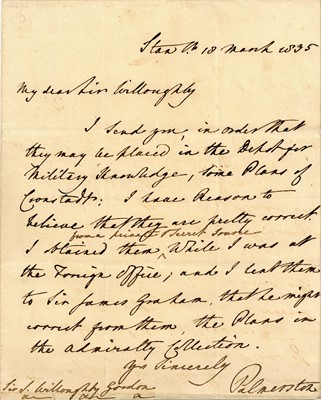 Stan St. 18 March 1835
My dear Sir Willoughby
I send you, in order that
they may be placed in the Depot for
Military Knowledge, some Plans of
Cronstadt; I have Reason to
believe that they are pretty correct.
from a secret Source
I obtained them While I was at
the Foreign Office; and I lent them
to Sir James Graham, that he might
correct from them the Plans in
the Admiralty Collection.
Yrs Sincerely
Palmerston
Sir J. Willoughby Gordon